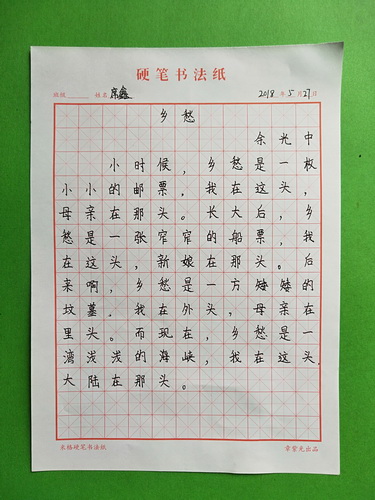 硬笔书法纸
班级 姓名 席鑫 2018年5月27日
乡愁
余光中
小时候，乡愁是一枚
小小的邮票。我在这头，
母亲在那头。长大后，乡
愁是一张窄窄的船票，我
在这头，新娘在那头。后
来啊，乡愁是一方矮矮的
坟墓。我在外头，母亲在
里头。而现在，乡愁是一
湾浅浅的海峡，我在这头，
大陆在那头。
米格硬笔书法纸 章紫光出品